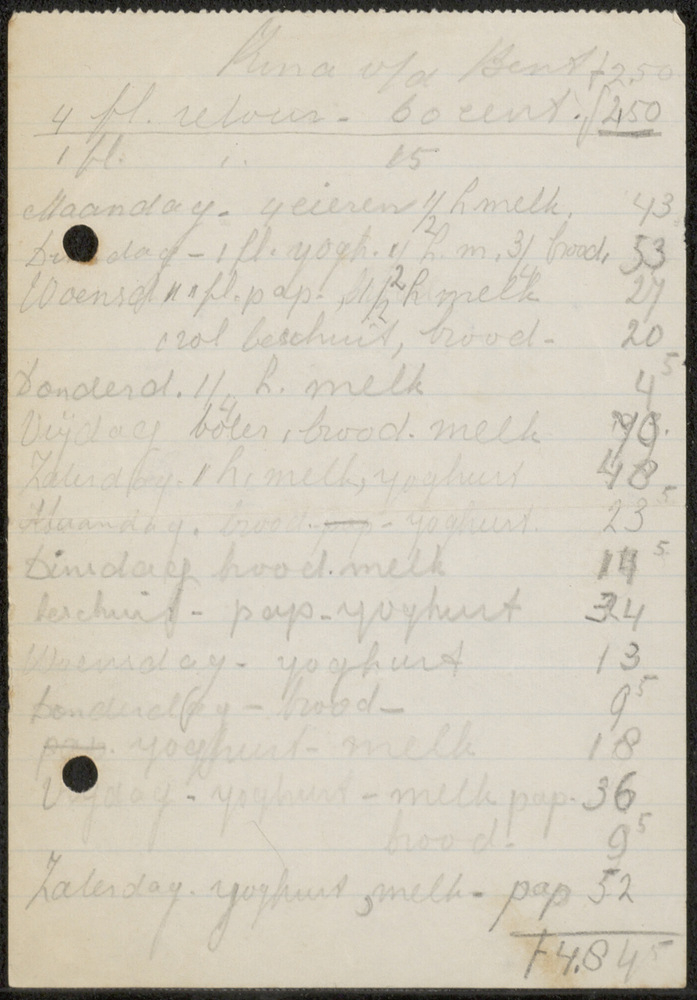 Rina v/d Bent f 2.50
4 fl. retour - 60 cent. f 2.50
1 fl. 15
Maandag - 4 eieren 1/2 h melk. 43
Dinsdag - 1 fl. yogh. 1/2 h. m. 3/4 brood, 53
Woensd 1 fl. pap. 1/2 h melk 27
1 rol beschuit, brood - 20
Donderd. 1/2 h. melk 4 5
Vrijdag boter, brood. melk 90.
Zaterdag. 1 h. melk, yoghurt 48
Maandag. brood. pap - yoghurt. 23 5
Dinsdag brood. melk 14 5
beschuit - pap - yoghurt 34
Woensdag - yoghurt 13
Donderdag - brood - 9 5
pap. yoghurt - melk 18
Vrijdag - yoghurt - melk pap - 36
brood. 9 5
Zaterdag - yoghurt, melk - pap 52
f 4.84 5